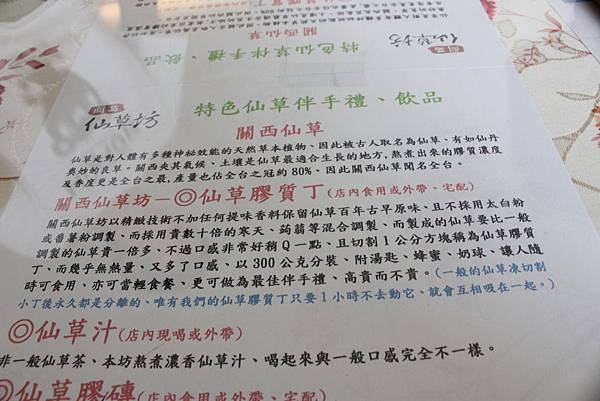 關西仙草
特色仙草伴手禮、飲品
仙草坊
關西
仙草坊
特色仙草伴手禮、飲品
關西仙草
仙草是對人體有多種神秘效能的天然草本植物、因此被古人取名為仙草、有如仙丹
奥妙的良草。關西夾其氣候、土壤是仙草最適合生長的地方,熬煮出來的膠質濃度
及香度更是全台之最,產量也佔全台之冠約 80%、因此關西仙草聞名全台。
關西仙草坊－◎仙草膠質丁(店內食用或外帶、宅配)
關西仙草坊以精緻技術不加任何提味香料保留仙草百年古早原味、且不採用太白粉
或蕃薯粉調製、而採用貴數十倍的寒天、蒟蒻等混合調製、而製成的仙草要比一般
調製的仙草貴一倍多、不過口感非常好稍 Q 一點、且切割 1 公分方塊稱為仙草膠質
丁、而幾乎無熱量、又多了口感、以 300 公克分裝、附湯匙、蜂蜜、奶球、讓人隨
時可食用、亦可當輕食餐、更可做為最佳伴手禮、高貴而不貴。(一般的仙草凍切割
小丁後永久都是分離的、唯有我們的仙草膠質丁只要 1 小時不去動它、就會互相吸在一起。)
◎仙草汁(店內現喝或外帶)
非一般仙草茶、本坊熬煮濃香仙草汁、喝起來與一般口感完全不一樣。
◎仙草膠磚(店內食用或外帶、宅配)